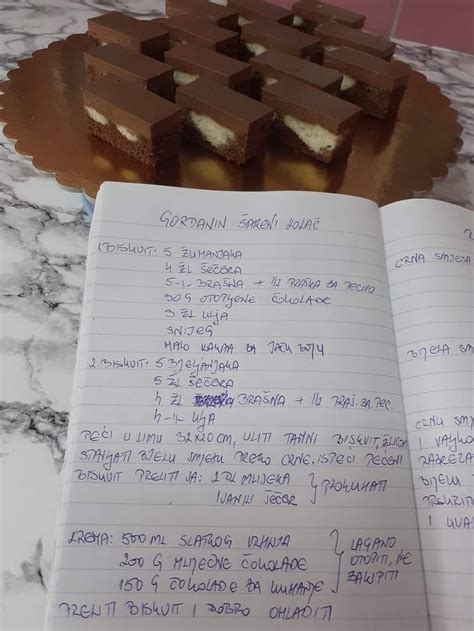 GORDANIN ŠARENI KOLAČ
1. BISKVIT: 5 ŽUMANJAKA
4 ŽL ŠEĆERA
5 -1- BRAŠNA + 1/2 PRAŠKA ZA PECIVO
30G OTOPLJENE ČOKOLADE
3 ŽL ULJA
SNIJEG
MALO KAKAA ZA JAČU BOJU
2. BISKVIT: 5 BJELANJAKA
5 ŽL ŠEĆERA
4 ŽL BRAŠNA + 1/2 PRAŠ. ZA PEC.
4 -1- ULJA
PEĆI U LIMU 32X20 CM, ULITI TAMNI BISKVIT, ŽLICOM
STAVLJATI BIJELU SMJESU PREKO CRNE. ISPEĆI. PEČENI
BISKVIT PRELITI SA: 2 DL MLIJEKA
1 VANILIJ ŠEĆER
PROKUHATI
KREMA: 500 ML SLATKOG VRHNJA
200 G MLIJEČNE ČOKOLADE
150 G ČOKOLADE ZA KUHANJE
LAGANO
OTOPITI, NE
ZAKIPITI
PRELITI BISKVIT I DOBRO OHLADITI
CRNA SMJESA
BIJELA SM
CRNU SM
BIJELU